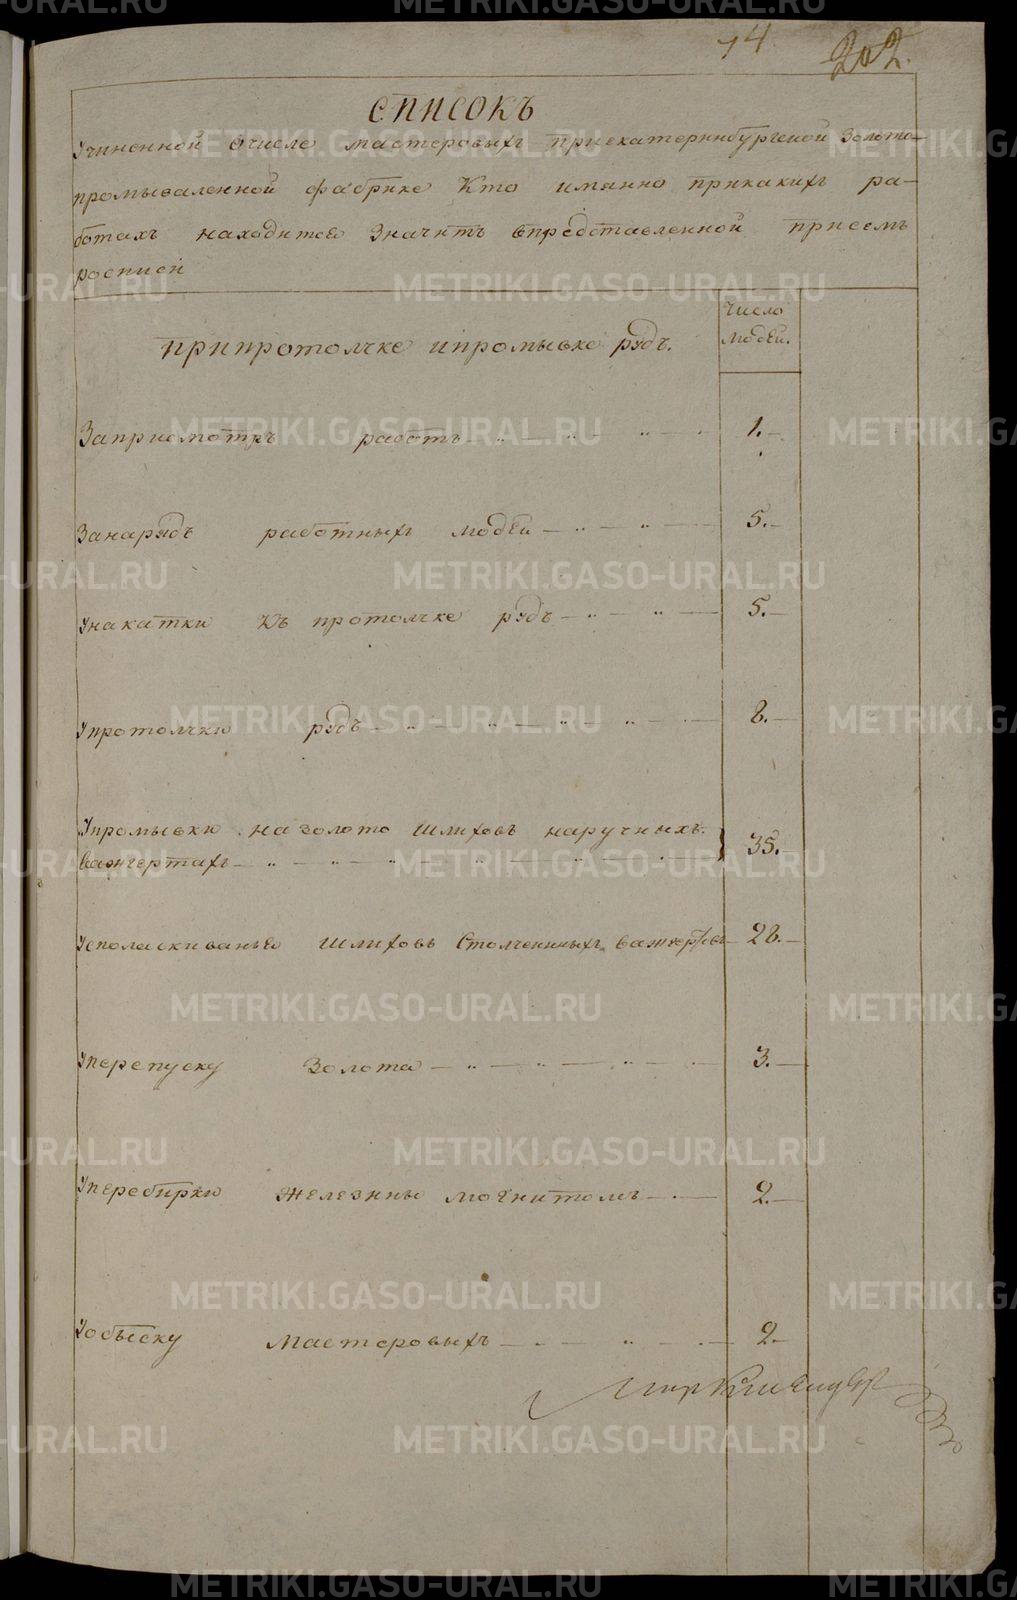 74
202.
СПИСОКЪ
Учиненной очисле мастеровыхъ приекатеринбургской Золото-
промываленной фабрике Кто имянно прикакихъ ра-
ботахъ находится Значитъ впредставленной присемъ
росписи
Число
людей.
припротолчке ипромывке рудъ.
Заприсмотръ работъ 1.
Занарядъ работныхъ людей 5.
Унакатки къ протолчке рудъ 5.
Упротолчки рудъ 8.
Упромывки на золото шлиховъ наручныхъ
вашгертахъ 35.
Усполаскиванья шлиховъ Столченныхъ вашгертовъ 28.
Уперепуску Золота 3.
Уперебирки железины могнитомъ 2.
Уобыску Мастеровыхъ 2.
METRIKI.GASO-URAL.RU